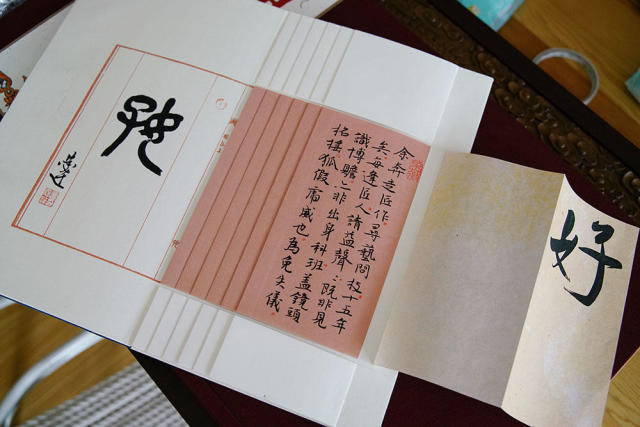 好
余奔走匠作尋藝問技十五年
矣每逢匠人請益聲〻既非見
識博贍非出身科班蓋鏡頭
招搖狐假虎威也為免失儀